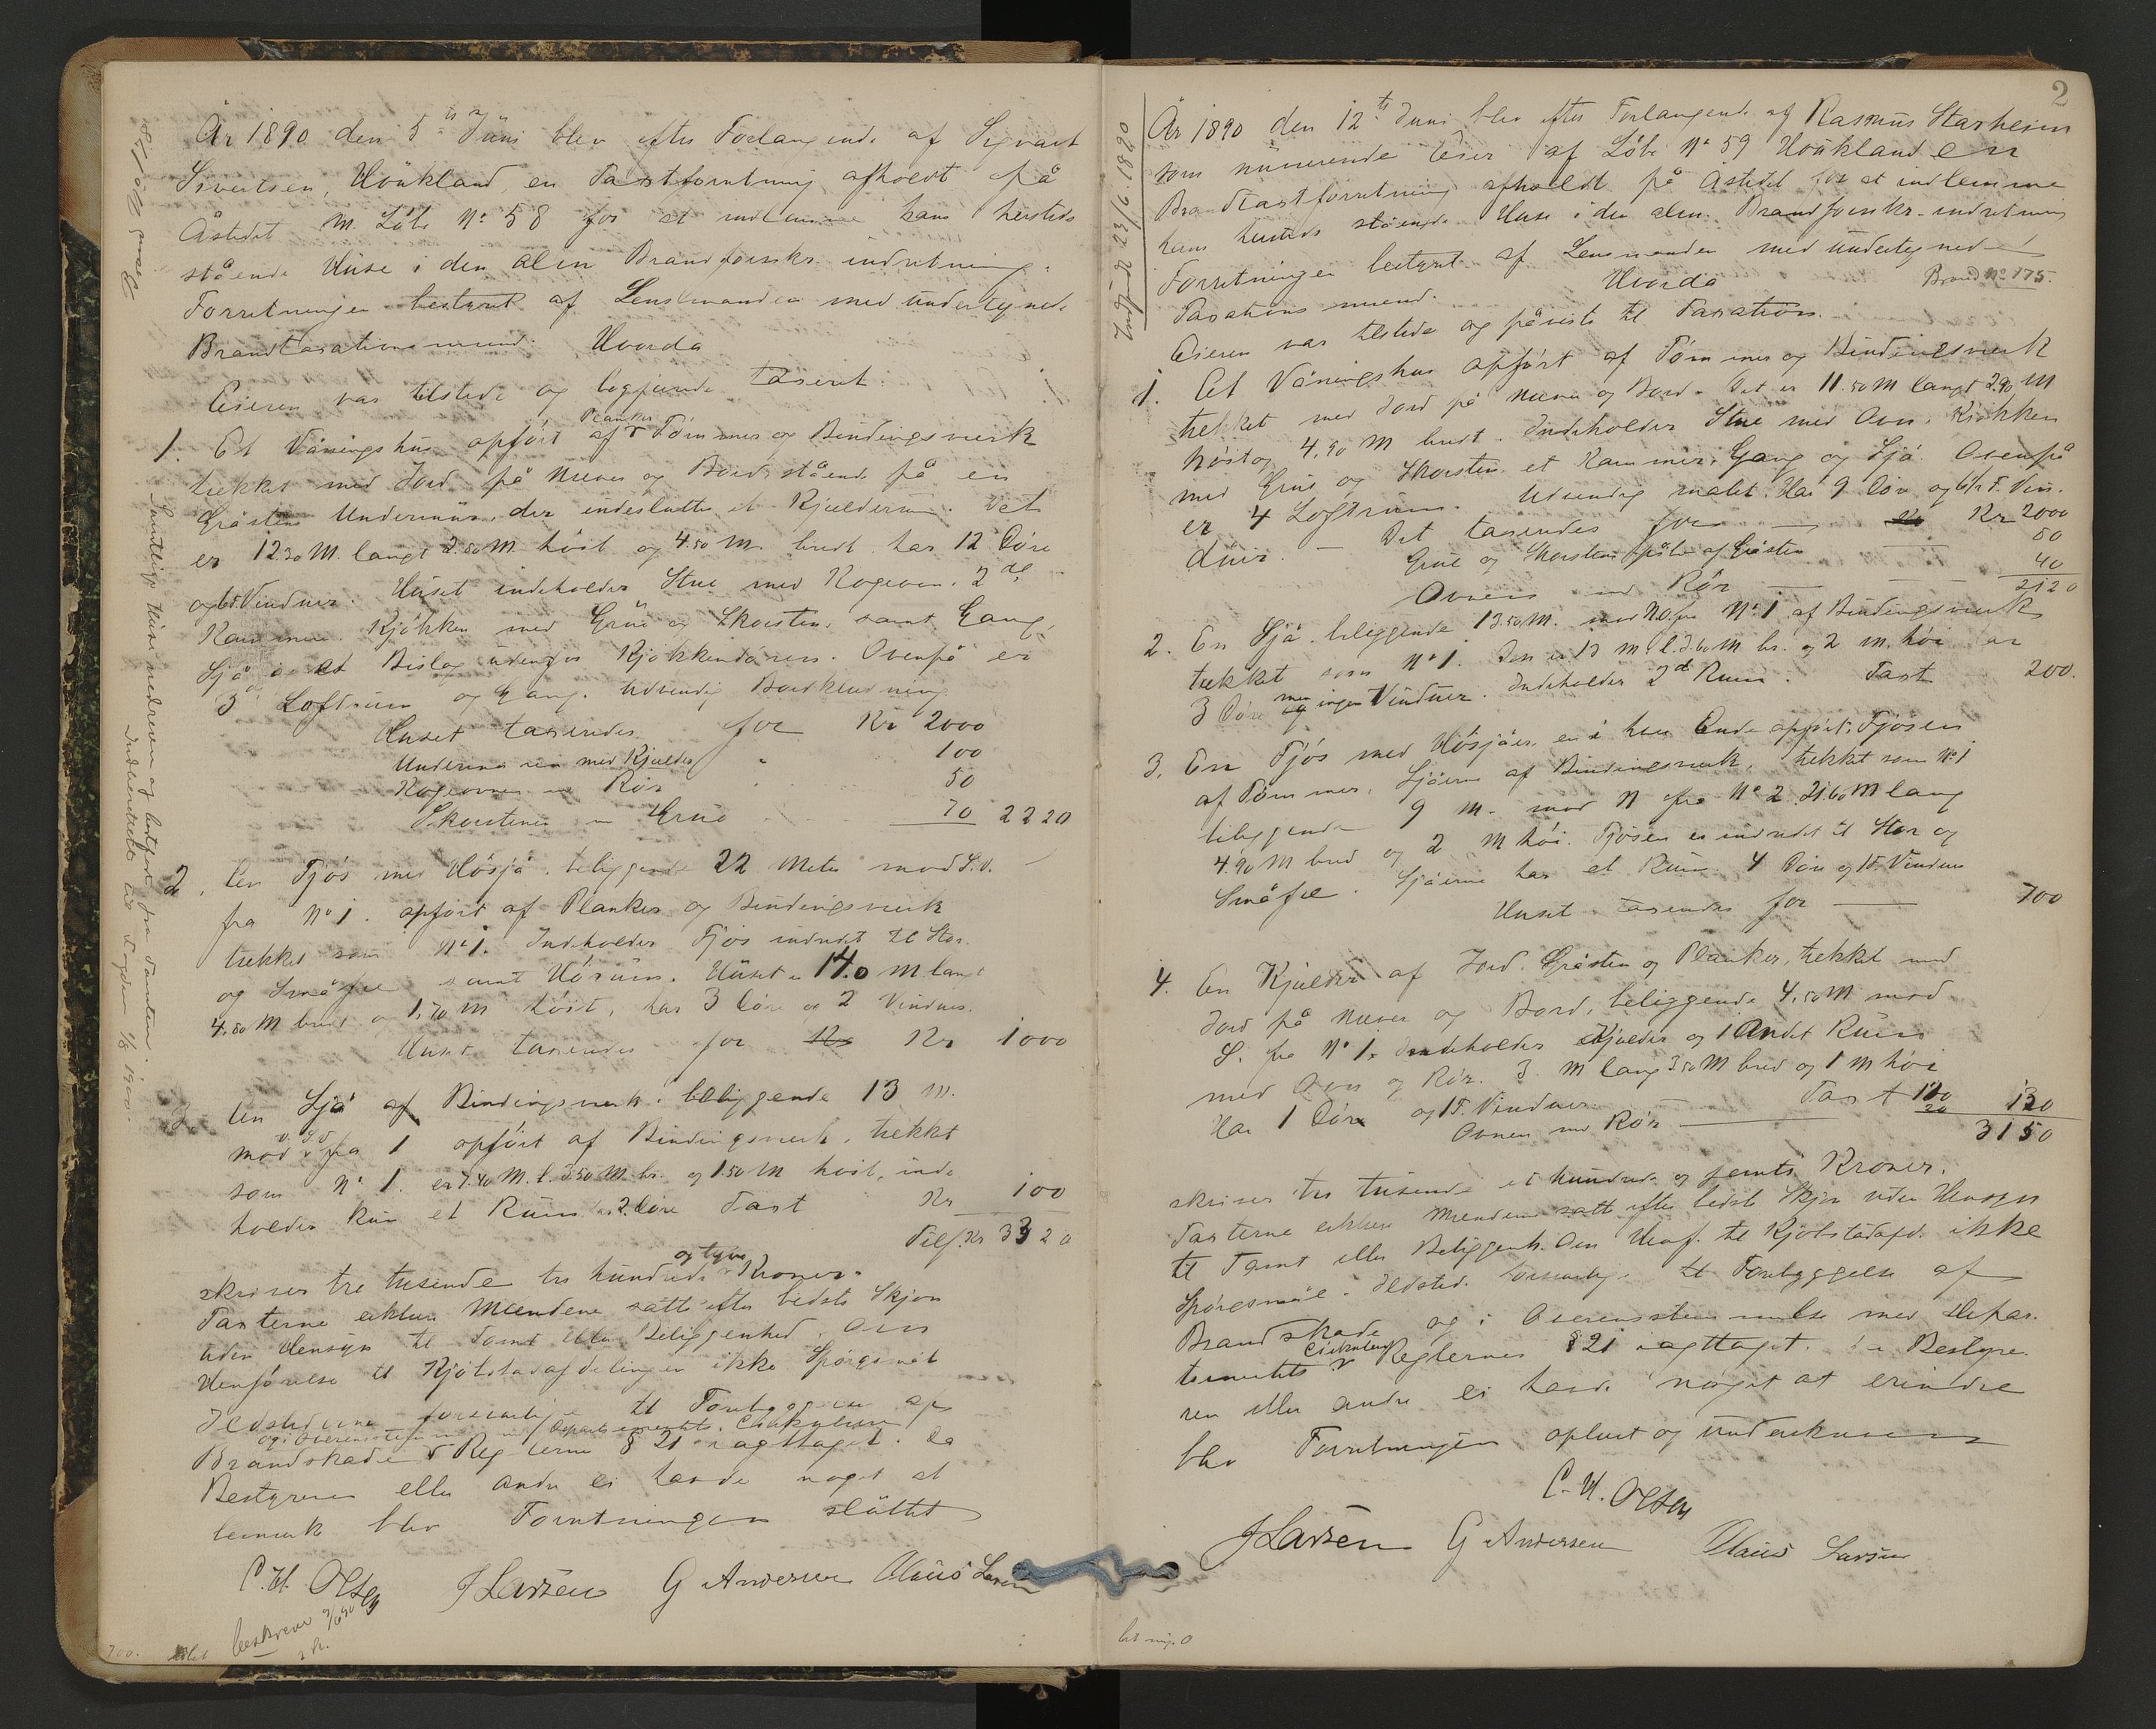 År 1890 den 5te Juni blev efter Forlangende af Sigvart
Sivertsen, Houkland en Taxtforretning afholdt på
Åstedet m. Løbe No 58 for at indlemme hans hersteds
stående Huse i den alm Brandforsikr. indretning.
Forretningen bestyret af Lensmanden med undertegnede
Brandtaxationsmænd. Hvorda
Eieren var tilstede og begjærede taxeret:
1. Et Våningshus opført af Planker Tømmer og Bindingsverk
tækket med Jord på Næver og Bord, stående på en
Gråstens Undermur, der indeslutter et Kjælderrum. Det
er 12.30 M. langt 2.80 M høit og 4.50 M. bredt har 12 Døre
og 6 F. Vinduer. Huset indeholder Stue med Kogeovn, 2de
Kammere. Kjøkken med Grue og Skorsten, samt Gang,
Sjå og et Bislag udenfor Kjøkkendøren. Ovenpå er
3 Loftrum og Gang. Udvendig Bordklædning.
Huset taxeredes for Kr 2000
Undermuren med Kjælder " 100
Kogeovnen m Rør " 50
Skorstenen m Grue 70 2220
2. En Fjøs med Høsjå beliggende 22 Meter mod S.V.
fra No 1. opført af Planker og Bindingsverk
tækket som No 1. Indeholder Fjøs indredet til Stor
og Småfæ samt Hørum. Huset er 14.0 M langt
4.80 M bredt og 1,70 M høit, har 3 Døre og 2 Vinduer.
Huset taxeredes for Kr Kr 1000
3 En Sjå af Bindingsverk beliggende 13 m.
mod V. S V fra 1 opført af Bindingsverk, tækket
som No 1. er 7.40 M. l. 3.50 M. br. og 1.50 M høit, inde
holder kun et Rum 2 Døre Taxt Kr 100
Tils. Kr 3320
skriver tre tusende tre hundrede og tyve Kroner.
Taxterne erklærer Mændene satte efter bedste Skjøn
uden Hensyn til Tomt eller Beliggenhed. Om
Henførelse til Kjøbstadafdelingen ikke Spørgsmål
Ildstederne forsvarlige til Forebyggelse af
og i Overensstemmelse med Departementets Cirkulære
Brandskade Reglerne § 21 iagttaget. Da
Bestyreren eller andre ei havde noget at
bemærke blev Forretningen sluttet
C. H. Olsen J Larsen G Andersen Claus Larsen
beskreven 9/6 90
Samtlige Huse nedreven og bortført fra Tomten.
Indberettet til Fogden 1/8 1900.
2
År 1890 den 12te Juni blev efter Forlangende af Rasmus Starheim
som nuværende Eier af Løbe No 59 Houkland en
Brandtaxtforretning afholdt på Åstedet for at indlemme
hans hersteds stående Huse i den alm. Brandforsikr-indretning
Forretningen bestyret af Lensmanden med undertegnede
Taxationsmænd. Hvorda Brand No 175.
Eieren var tilstede og påviste til Taxation.
1. Et Våningshus opført af Tømmer og Bindingsverk
tækket med Jord på Næver og Bord. Det er 11.50 M langt 2.90 M
høit og 4,90 M bredt. Indeholder Stue med Ovn, Kjøkken
med Grue og Skorsten, et Kammer, Gang og Sjå. Ovenpå
er 4 Loftrum. Udvendig malet. Har 9 Døre og 6 F. Vin-
duer. — Det taxeredes for — Kr 2000
Grue og Skorsten af Gråsten 80
Ovnen m Rør 40
2120
2. En Sjå beliggende 13.50 M. mod N.O. fra No 1 af Bindingsverk
tækket som No 1. Den er 13 M l. 3.60 M br. og 2 M. høi har
3 Døre og men ingen Vinduer. Indeholder 2de Rum. Taxt 200.
3. En Fjøs med Høsjåer, en i hver Ende opført, Fjøsen
af Tømmer, Sjåerne af Bindingsverk, tækket som No 1
beliggende 9 M. mod N fra No 2. 21.60 M lang
4.90 M bred og 2 M høi. Fjøsen er indredet til Stor og
Småfæ. Sjåerne har et Rum. 4 Døre og 1 F. Vindue
Huset taxeredes for — 700
4. En Kjælder af Jord. Gråsten og Planker, tækket med
Jord på Næver og Bord, beliggende 4.50 M mod
S. fra No 1. Indeholder Kjælder og 1 andet Rum
med Ovn og Rør. 3. M lang 3.50 M bred og 1 M høi
Har 1 Dør og 1 F. Vindue. Taxt 100
Ovnen med Rør — 20 130
3150
skriver tre tusende et hundrede og femti Kroner.
Taxterne erklærer Mændene satt efter bedste Skjøn uden Hensyn
til Tomt eller Beliggenh. Om Henf. til Kjøbstadafd. ikke
Spørgsmål. Ildsted. forsvarlige til Forebyggelse af
Brandskade og i Overensstemmelse med Depar-
tementets Cirkulære Reglernes § 21 iagttaget. Da Bestyre-
ren eller andre ei havde noget at erindre
blev Forretningen oplæst og underskreven
C. H. Olsen
J Larsen G Andersen Claus Larsen